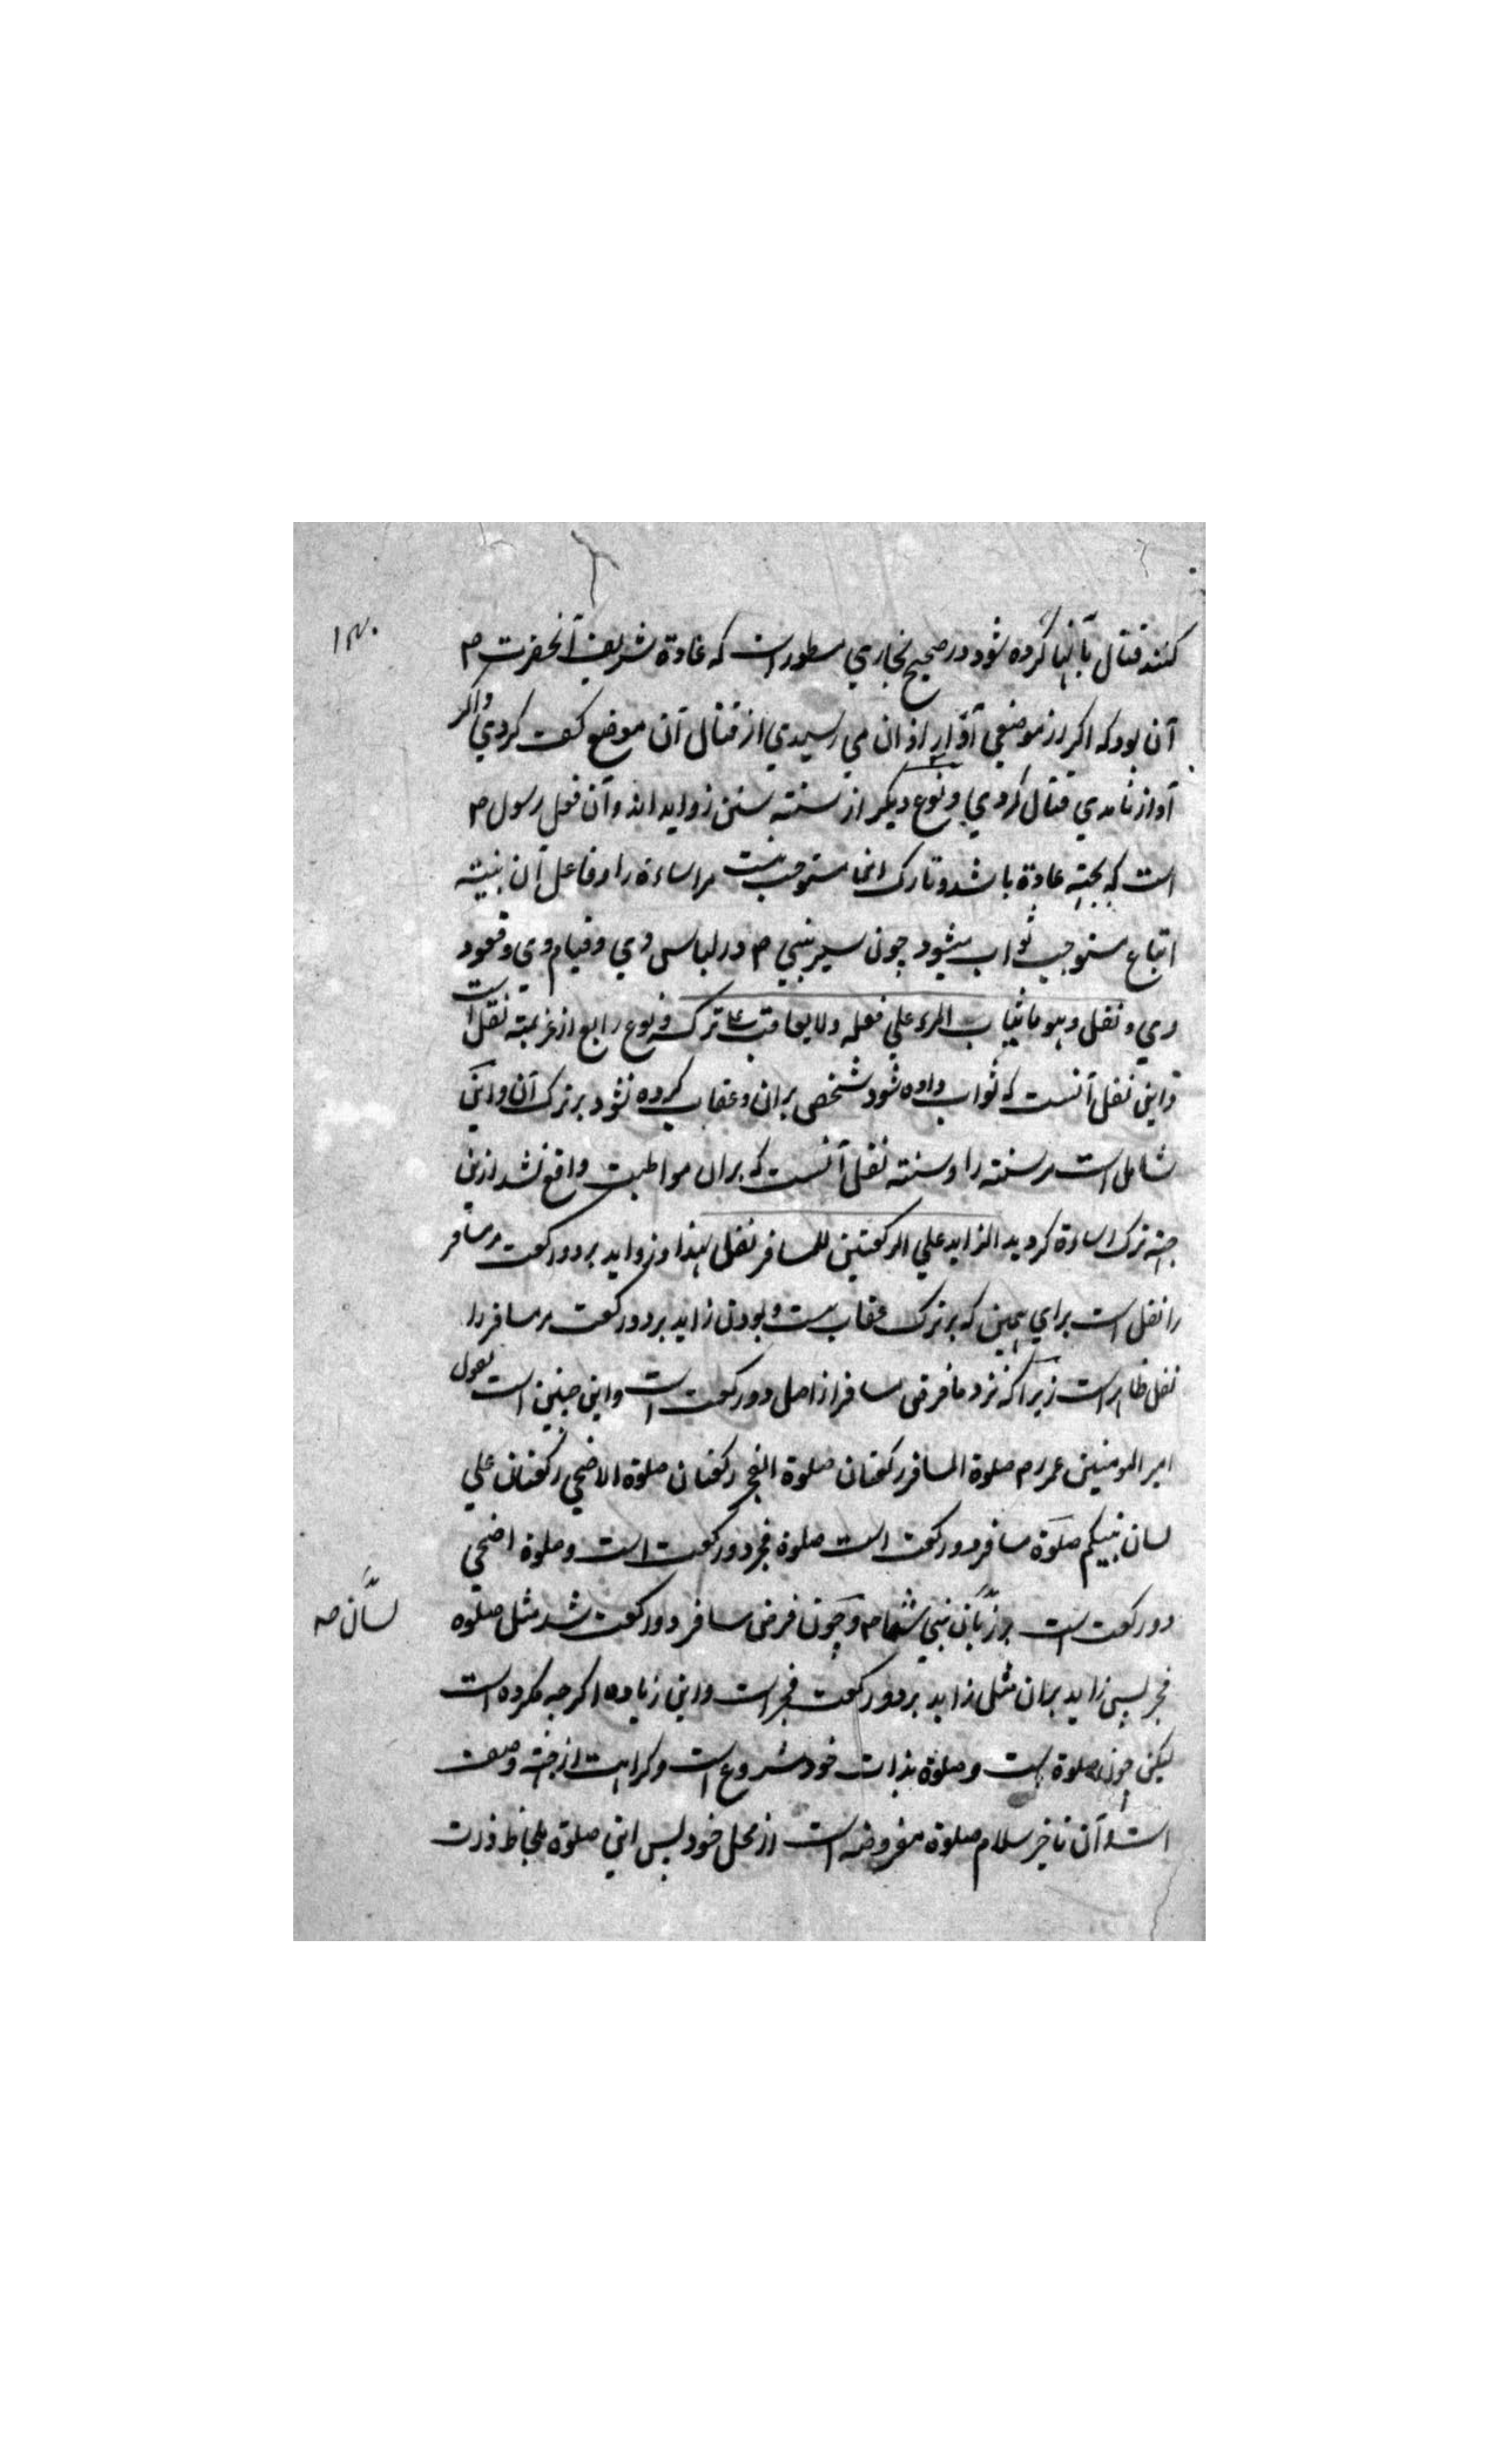 ۱۳۰
کنند قتال با آنها کرده شود در صحیح بخاري مسطور است که عادة شریف آنحضرت م
آن بود که اکر از موضعي آواز اذان مي رسیدي از قتال آن موضع کف کردي واکر
آواز نامدي قتال کردي ونوع دیکر از سنته سنن زواید اند وآن فعل رسول م
است که بجهته عادة باشد وتارک انها مستوجب نیست مر اساءة را وفاعل آن بنیته
اتباع مستوجب ثواب میشود چون سیر نبي م در لباس وي وقیام وي وقعود
وي ونفل وهو ما یثاب المرء علي فعله ولا یعاقب علی ترکه ونوع رابع از عزیمته نفل است
واین نفل آنست که ثواب داده شود شخصي بران وعقاب کرده نشود بر ترک آن واین
شامل است مر سنته را وسنته نفل آنست که بران مواظبت واقع نشد ازین
جهته ترک اساءة کردید الزاید علي الرکعتین للمسافر نفل لهذا وزواید بر دو رکعت مر مسافر
را نفل است براي همین که بر ترک عقاب نیست وبودن زاید بر دو رکعت مر مسافر را
نفل ظاهر است زیرا که نزد ما فرض مسافر از اصل دو رکعت است واین چنین است بقول
امیر المومنین عمر رم صلوة المسافر رکعتان صلوة الفجر رکعتان صلوة الاضحي رکعتان علي
لسان نبیکم صلوة مسافر دو رکعت است صلوة فجر دو رکعت است وصلوة اضحي
دو رکعت است بر زبان نبي شما م وچون فرض مسافر دو رکعت شد مثل صلوة
لسان صه
فجر پس زاید بران مثل زاید بر دو رکعت فجر است واین زیاده اکرچه مکروه است
لیکن چون صلوة است وصلوة بذات خود مشروع است وکراهت از جهته وصف
است وآن تاخیر سلام صلوة مفروضه است از محل خود پس این صلوة بلحاظ ذات